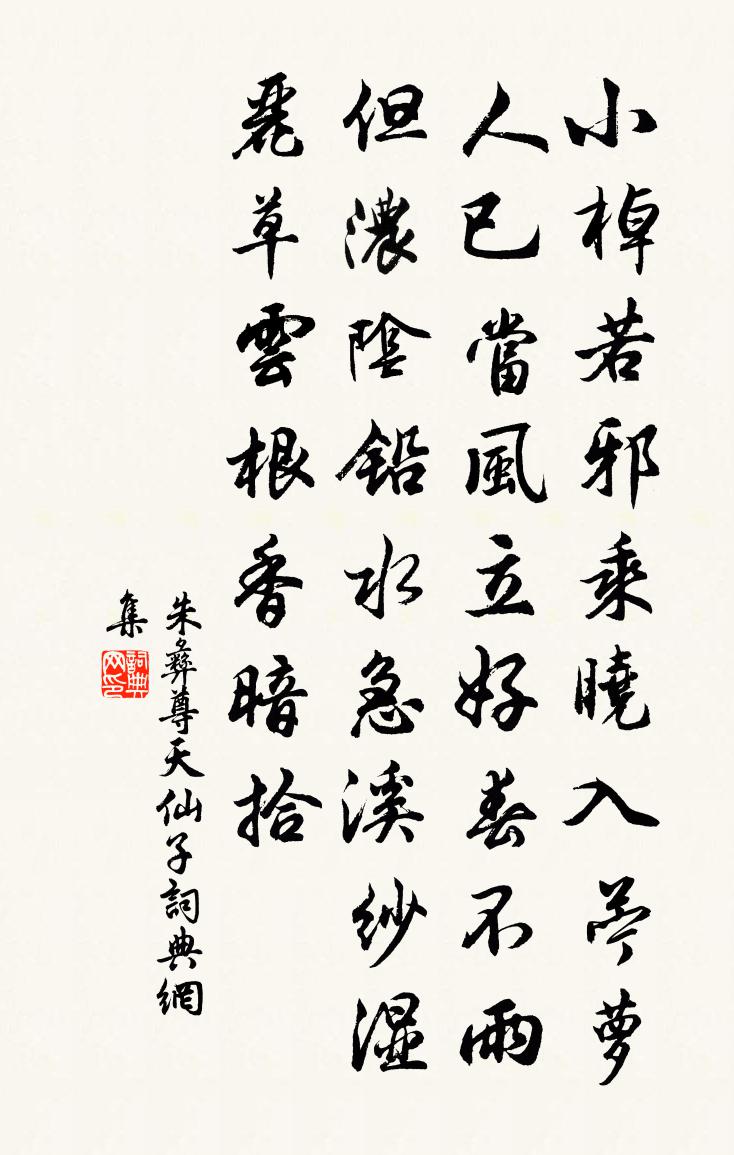 小棹若邪乘曉入苧萝
人已當風立好春不雨
但濃陰鉛水急溪紗湿
麗草雲根香暗拾
朱彝尊天仙子詞典網
集
詞典网印